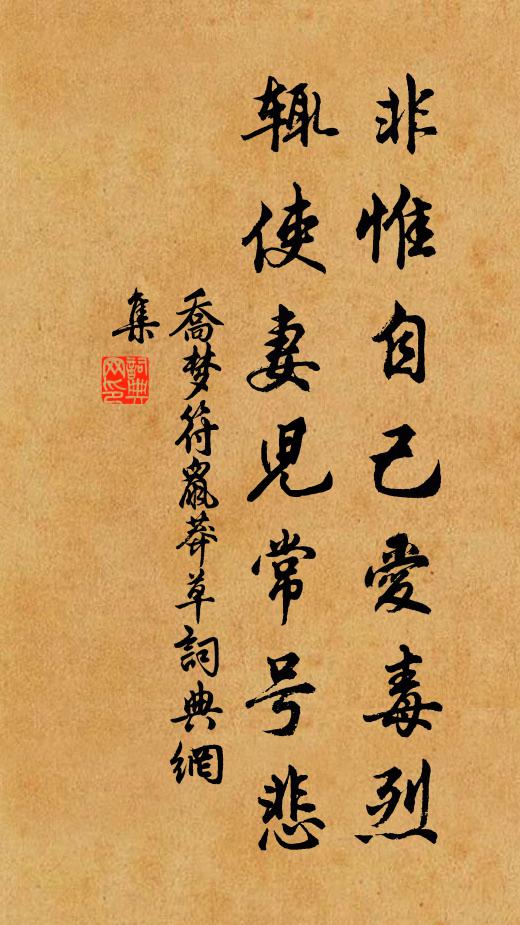 非惟自己爱毒烈
辄使妻児常号悲
喬梦符鼠莽草詞典網
集
詞典网印